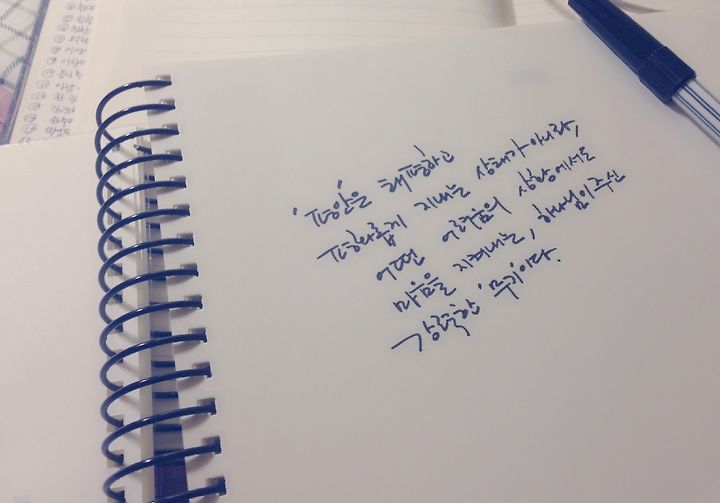 "평안"은 태평하고
평화롭게 지내는 상태가 아니라,
어떤 어려움의 상황에서도
마음을 지켜내는, 하나님이 주신
강력한 '무기'이다.